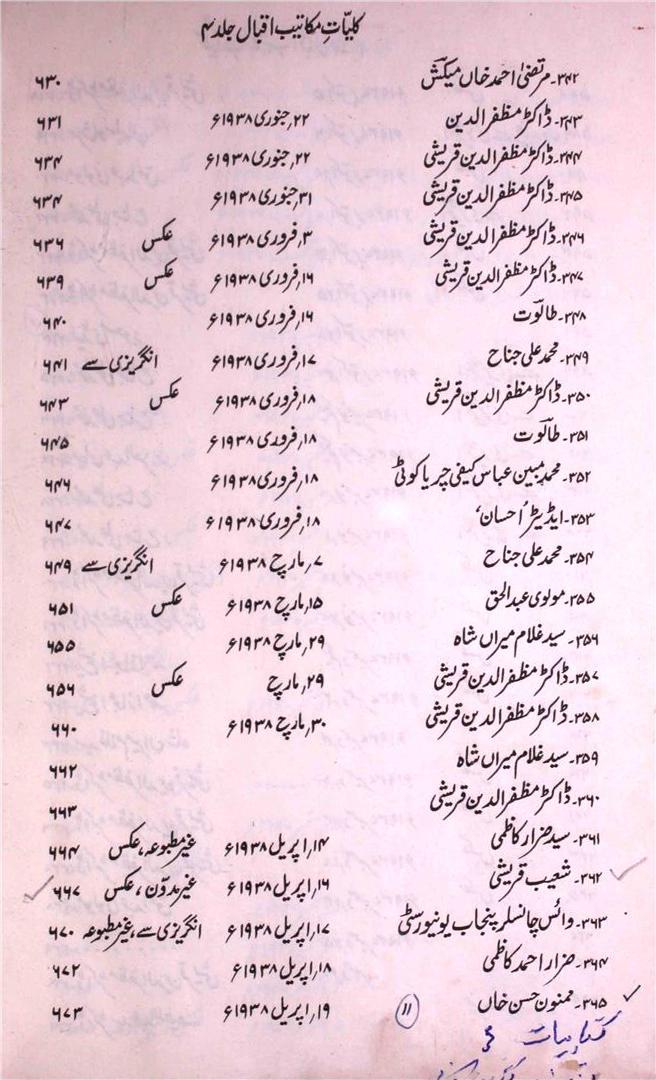 کلیّاتِ مکاتیب اقبال جلد ۴
۳۴۲۔ مرتضیٰ احمد خاں میکش ۶۳۰
۳۴۳۔ ڈاکٹر مظفر الدین ۲۲؍ جنوری ۱۹۳۸ء ۶۳۱
۳۴۴۔ ڈاکٹر مظفر الدین قریشی ۲۲؍ جنوری ۱۹۳۸ء ۶۳۴
۳۴۵۔ ڈاکٹر مظفر الدین قریشی ۳۱؍ جنوری ۱۹۳۸ء ۶۳۴
۳۴۶۔ ڈاکٹر مظفر الدین قریشی ۳؍ فروری ۱۹۳۸ء عکس ۶۳۶
۳۴۷۔ ڈاکٹر مظفر الدین قریشی ۱۶؍ فروری ۱۹۳۸ء عکس ۶۳۹
۳۴۸۔ طالوت ۱۶؍ فروری ۱۹۳۸ء ۶۴۰
۳۴۹۔ محمد علی جناح ۱۷؍ فروری ۱۹۳۸ء انگریزی سے ۶۴۱
۳۵۰۔ ڈاکٹر مظفر الدین قریشی ۱۸؍ فروری ۱۹۳۸ء عکس ۶۴۳
۳۵۱۔ طالوت ۱۸؍ فروری ۱۹۳۸ء ۶۴۵
۳۵۲۔ محمد مبین عباس کیفی چریا کوٹی ۱۸؍ فروری ۱۹۳۸ء ۶۴۶
۳۵۳۔ ایڈیٹر ’احسان‘ ۱۸؍ فروری ۱۹۳۸ء ۶۴۷
۳۵۴۔ محمد علی جناح ۷؍ مارچ ۱۹۳۸ء انگریزی سے ۶۴۹
۳۵۵۔ مولوی عبدالحق ۱۵؍ مارچ ۱۹۳۸ء عکس ۶۵۱
۳۵۶۔ سید غلام میراں شاہ ۲۹؍ مارچ ۱۹۳۸ء ۶۵۵
۳۵۷۔ ڈاکٹر مظفر الدین قریشی ۲۹؍ مارچ عکس ۶۵۶
۳۵۸۔ ڈاکٹر مظفر الدین قریشی ۳۰؍ مارچ ۱۹۳۸ء ۶۶۰
۳۵۹۔ سید غلام میراں شاہ ۶۶۲
۳۶۰۔ ڈاکٹر مظفر الدین قریشی ۶۶۳
۳۶۱۔ سید ضرار کاظمی ۱۴؍ اپریل ۱۹۳۸ء غیر مطبوعہ، عکس ۶۶۴
۳۶۲۔ شعیب قریشی ۱۶؍ اپریل ۱۹۳۸ء غیر مدوّن، عکس ۶۶۷
۳۶۳۔ وائس چانسلر پنجاب یونیورسٹی ۱۷؍ اپریل ۱۹۳۸ء انگریزی سے، غیر مطبوعہ ۶۷۰
۳۶۴۔ ضرار احمد کاظمی ۱۸؍ اپریل ۱۹۳۸ء ۶۷۲
۳۶۵۔ ممنون حسن خاں ۱۹؍ اپریل ۱۹۳۸ء ۶۷۳
۱۱
کتابیات